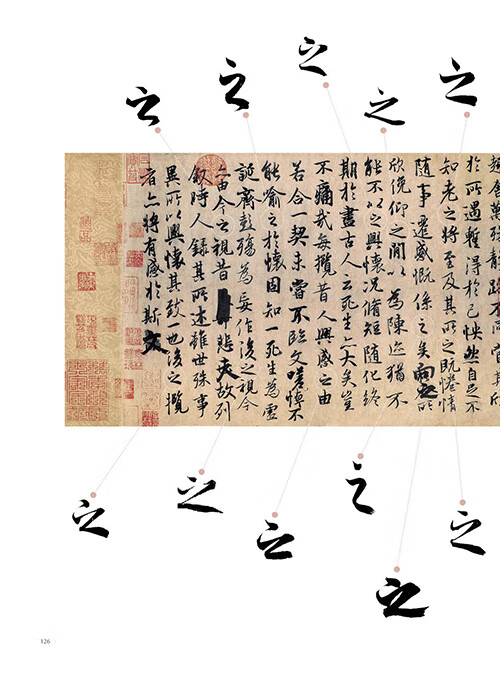 之 之 之 之 之
趣舍萬殊靜躁不同當其欣
於所遇蹔得於己怏然自足不
知老之將至及其所之既惓情
隨事遷感慨係之矣向之所
欣俛仰之閒以為陳迹猶不
能不以之興懷況脩短隨化終
期於盡古人云死生亦大矣豈
不痛哉每攬昔人興感之由
若合一契未嘗不臨文嗟悼不
能喻之於懷固知一死生為虛
誕齊彭殤為妄作後之視今
亦由今之視昔悲夫故列
敘時人錄其所述雖世殊事
異所以興懷其致一也後之攬
者亦將有感於斯文
之 之 之 之 之 之
126